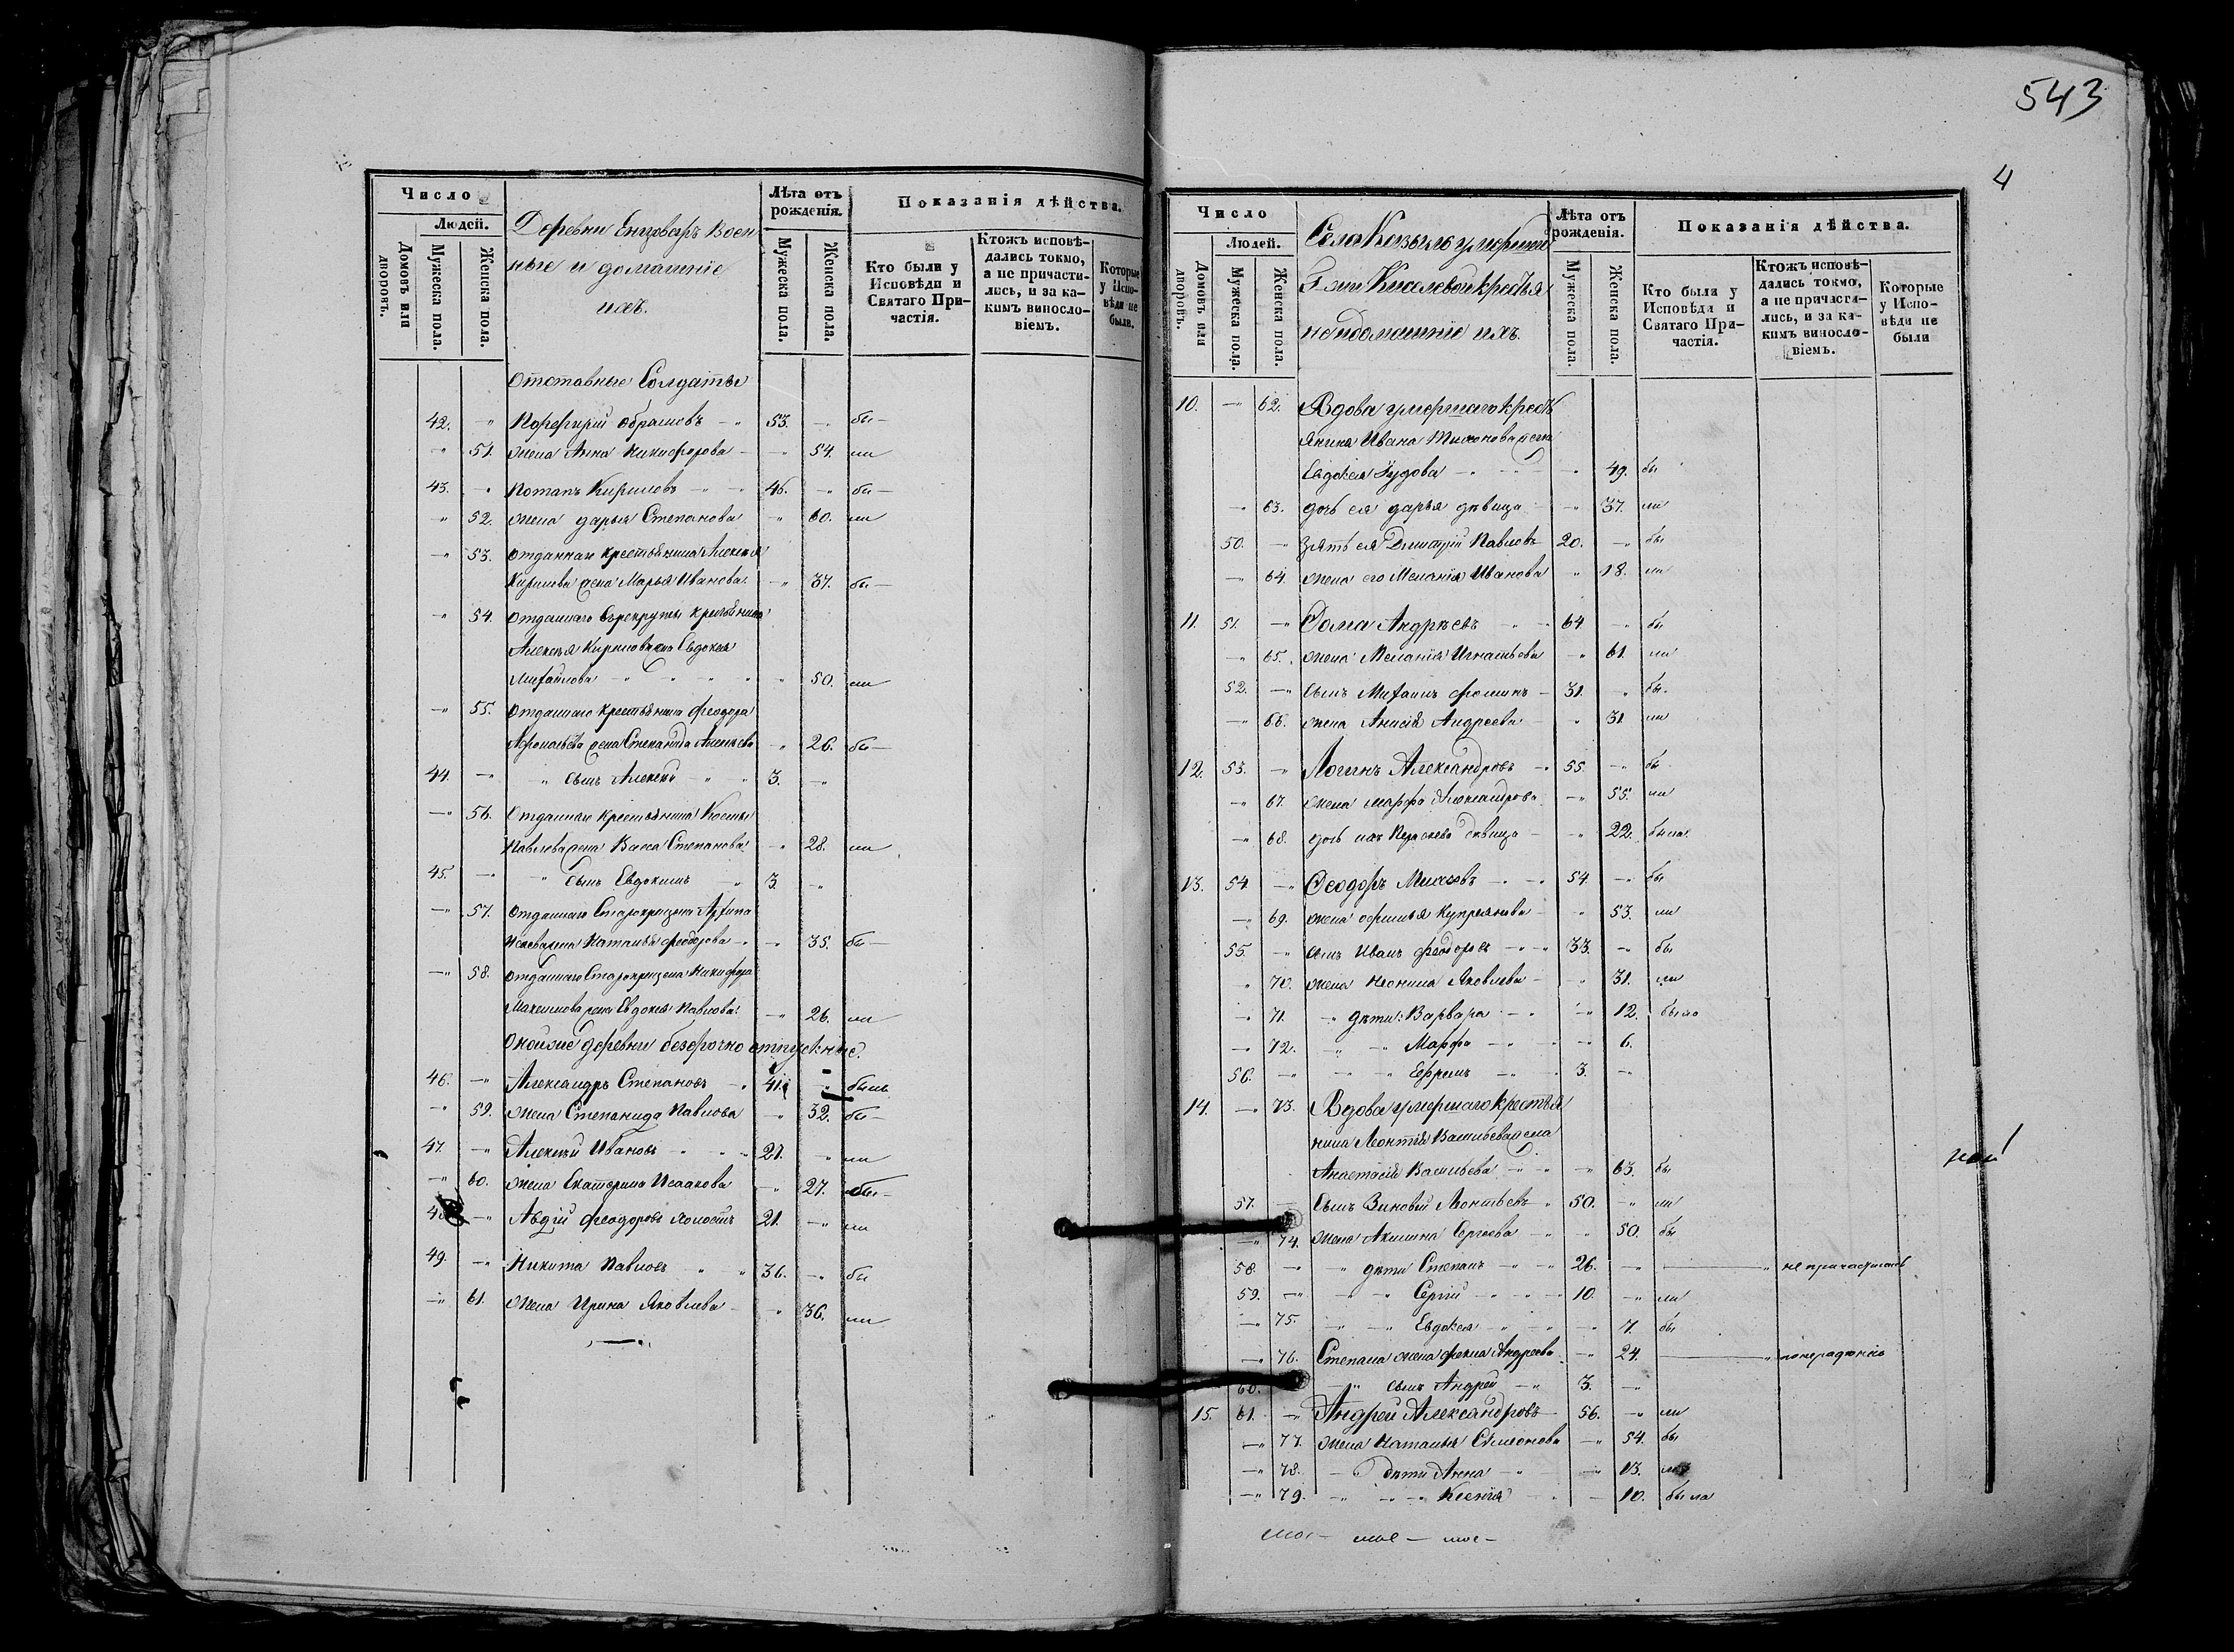 Число
Людей.
Домовъ или дворовъ.
Мужеска пола.
Женска пола.
Деревни Енизоваръ Воен
ные и домашніе
ихъ.
Лѣта отъ рожденія.
Мужеска пола.
Женска пола.
Показанія дѣйства.
Кто были у Исповѣди и Святаго Причастія.
Ктожъ исповѣдались токмо, а не причастились, и за какимъ винословіемъ.
Которые у Исповѣди не были.
Отставные Солдаты
42. Порфирій Абрамовъ 53. бы
51. жена Анна Никифорова 54. ли
43. Потапъ Кириловъ 46. бы
52. жена дарья Степанова 60. ли
53. Отданнаго крестьянина Алексея
Кирилова жена Марья Иванова 37. бы
54. Отданнаго въ рекруты крестьянина
Алексея Кирилова жена Евдокея
Михайлова 50. ли
55. Отданнаго крестьянина Феодора
жена Степанида Алексеева 26. бы
44. сынъ Алексей 3.
56. Отданнаго крестьянина Космы
Павлова жена Васса Степанова 28. ли
45. сынъ Евдокимъ 3.
57. отданнаго Старокрещена Архипа
жена Наталья Феодорова 35. бы
58. отданнаго Старокрещена Никифора
Максимова жена Евдокея Павлова 26. ли
Онойже деревни безсрочно отпускные
46. Александръ Степановъ 41. былъ
59. жена Степанида Павлова 32. бы
47. Алексей Ивановъ 21. ли
60. жена Екатерина Исаакова 27. бы
48 Авдій Феодоровъ холостъ 21. ли
49. Никита Павловъ 36. бы
61. жена Ирина Яковлева 36. ли
543
4
Число
Людей.
Домовъ или дворовъ.
Мужеска пола.
Женска пола.
Села
Киселевой крестья
не и домашніе ихъ.
Лѣта отъ рожденія.
Мужеска пола.
Женска пола.
Показанія дѣйства.
Кто были у Исповѣди и Святаго Причастія.
Ктожъ исповѣдались токмо, а не причастились, и за какимъ винословіемъ.
Которые у Исповѣди не были
10. 62. Вдова умершаго кресть
янина Ивана Тихонова жена
Евдокея Іудова 49. бы
63. дочь ея дарья дѣвица 37. ли
50. Зять ея Димитрій Павловъ 20. бы
64. жена его Меланія Иванова 18. ли
11. 51. Фома Андреевъ 64 бы
65. жена Меланія Игнатьева 61. ли
52. сынъ Михаилъ Фоминъ 31. бы
66. жена Анисія Андреева 31 ли
12. 53. Логинъ Александровъ 55. бы
67. жена Марфа Александрова 55. ли
68. дочь ихъ дѣвица 22. была
13. 54 Феодоръ Мисаевъ 54. бы
69. жена Купреянова 53. ли
55. сынъ Иванъ Феодоровъ 33. бы
70. жена Неонила Яковлева 31. ли
71. дѣти: Варвара 12. была
72. Марфа 6.
56. Ефремъ 3.
14. 73. Вдова умершаго крестья
нина Леонтія Васильева жена
Анастасія Васильева 63. бы
57. сынъ Зиновій Леонтьевъ 50. ли
74. жена Акилина Сергеева 50. бы
58. дѣти Степанъ 26. не причастилсъ
59. Сергій 10. ли
75. Евдокея 7. бы
76. Степана жена Фекла Андреева 24. понерадѣнію
60. сынъ Андрей 3.
15. 61. Андрей Александровъ 56. ли
77. жена Наталья Симеонова 54. бы
78. дѣти Анна 13. ли
79. Ксенія 10. была